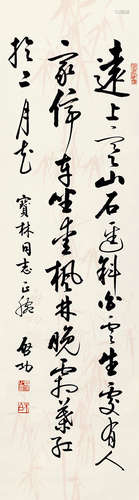 遠上寒山石逕斜白雲生處有人
家停車坐愛楓林晚霜葉紅
於二月花
寶林同志正腕 啟功